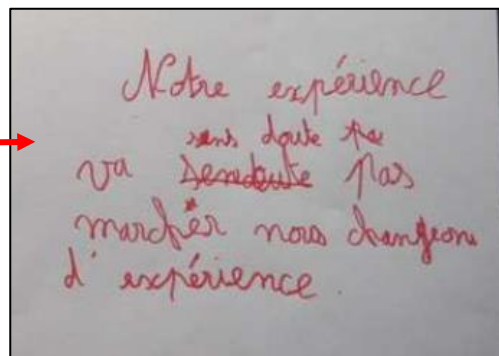 Notre expérience
sans doute pas
va sendoute pas
marcher nous changeons
d'expérience.